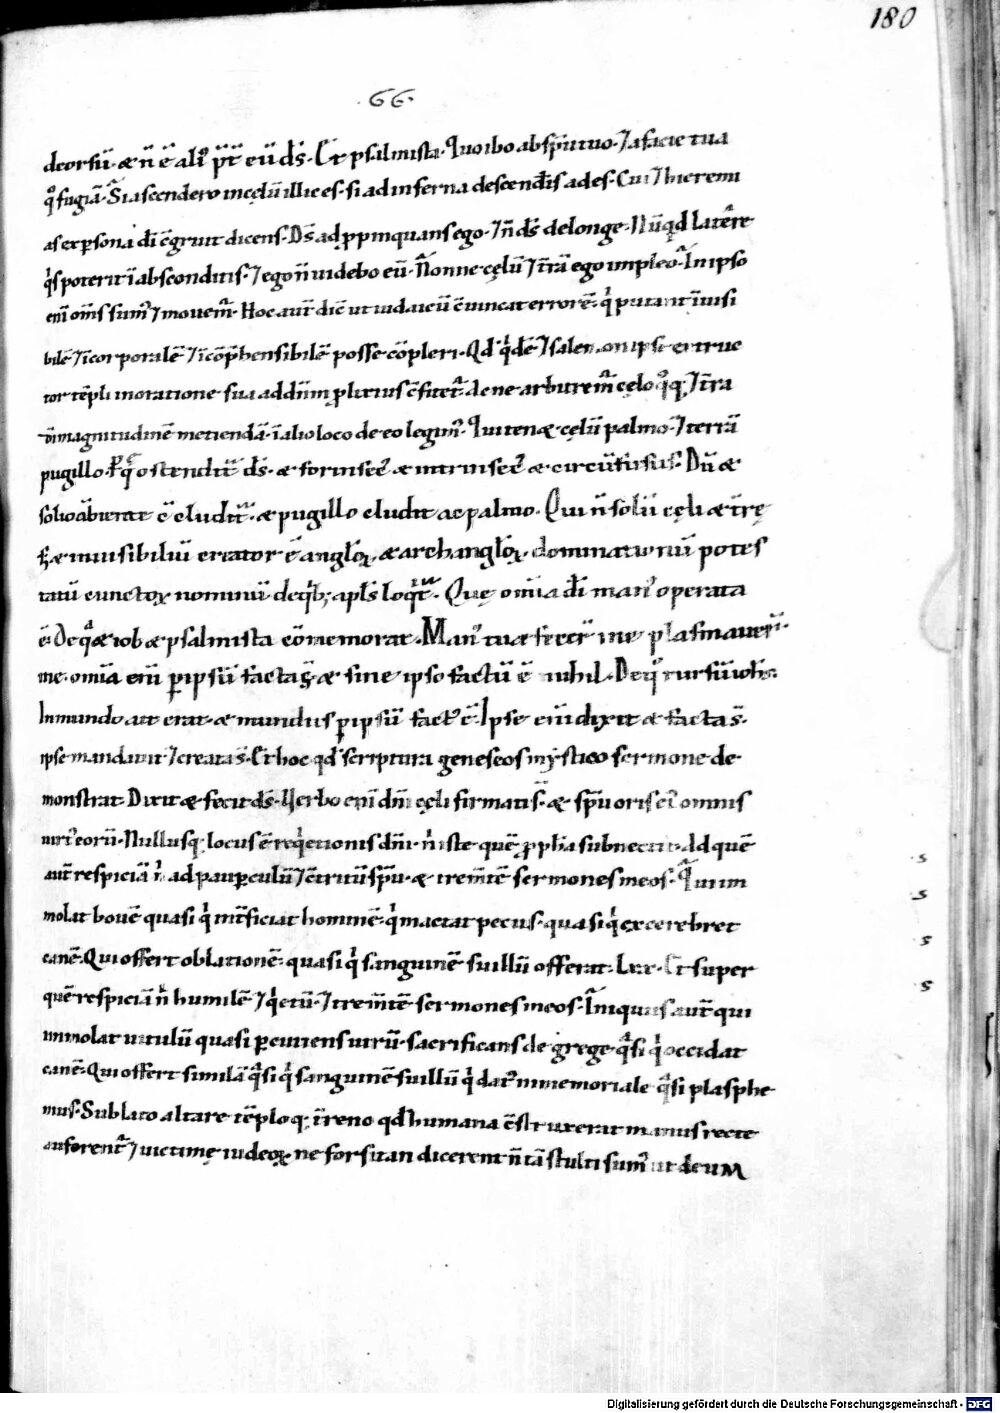 180
.66.
deorsū. & n̄ ē aliꝰ p̄t eū d̄s. Et psalmista. Quo ibo ab sp̄u tuo. ⁊ a facie tua
q°fugiā. Si ascendero in cęlū illic es. si ad inferna descend̄is ades. Cui ⁊ hieremi
as ex ꝑsona dī c̄gruit dicens. D̄s ad ꝓpinquans ego. ⁊ n̄ d̄s de longe. Nūq̄d latēre
q̇s poterit ī absconditis. ⁊ ego n̄ videbo eū. Nonne cęlū ⁊ t̄rā ego impleo. In ipso
enī om̄s sumꝰ ⁊ movemr̄. Hoc aut̄ dic̄ ut iudaicū c̄vincat errorē. q̇ putant īvisi
bilē ⁊ īcorporalē ⁊ īcōp̄hensibilē posse cōpleri. Qd̄ q̇dē ⁊ salem on ipse exstruc
tor tēpli in oratione sua
magnitudinē metiendā. ī alio loco de eo legimꝰ. Qui ten& cęlū palmo. ⁊ terrā
pugillo. ostenditr̄ d̄s. & forinsec̄ & intrinsec̄ & circūfusus. Dū &
solio ē cluditr̄. & pugillo cludit ac palmo. Qui n̄ solū cęli & t̄rę
& invisibiliū creator ē anglōꝝ. & archanglōꝝ. dominationū potes
tatū cunctoꝝ nominū de q̇b; ap̄ls loq̇tr̄. Quę om̄ia dī manꝰ operata
ē. De q̇ & iob & psalmista cōmemorat. Manꝰ tuæ fecer̄ me plasmaver̄
me. om̄ia enī ꝑ ipsū facta s̄. & sine ipso factū ē nihil. De q° rursū ioh̄s.
In mundo aīt erat. & mundus ꝑ ipsū factꝰ ē. Ipse enī dixit & facta s̄.
ipse mandavit ⁊ creata s̄. Et hoc qd̄ scriptura geneseos mystico sermone de
monstrat. Dixit & fecit d̄s. Verbo enī dn̄i cęli firmati s̄. & sp̄u oris eiꝰ omnis
virtꝰ eorū. Nullusq; locus ē req̇etionis dn̄i. n̄ iste quē ꝓph̄a subnectit. Ad quē
aut̄ respiciā n̄ ad pauꝑculū ⁊ c̄tritū sp̄u. & trem̄tē sermones meos. Qui im
molat bovē quasi q̇ int̄ficiat hominē. q̇ mactat pecus. quasi q̇ excerebret
canē. Qui offert oblationē. quasi q̇ sanguinē suillū offerat. Lxx. Et super
quē respiciā n̄ humilē ⁊ q̇etū. ⁊ trem̄tē sermones meos. Iniquus aut̄ qui
immolat vitulū quasi ꝑcutiens virū. sacrificans de grege. q̄si q̇ occidat
canē. Qui offert similā q̄si q̇ sanguinē suillū. q̇ dat in memoriale q̄si plasphe
mus. Sublato altare tēploq; t̄reno qd̄ humana c̄struxerat manus recte
auferentr̄ ⁊ victimę iudeoꝝ. ne forsitan dicerent n̄ tā stulti sumꝰ ut deum
s
s
s
s
Digitalisierung gefördert durch die Deutsche Forschungsgemeinschaft - DFG